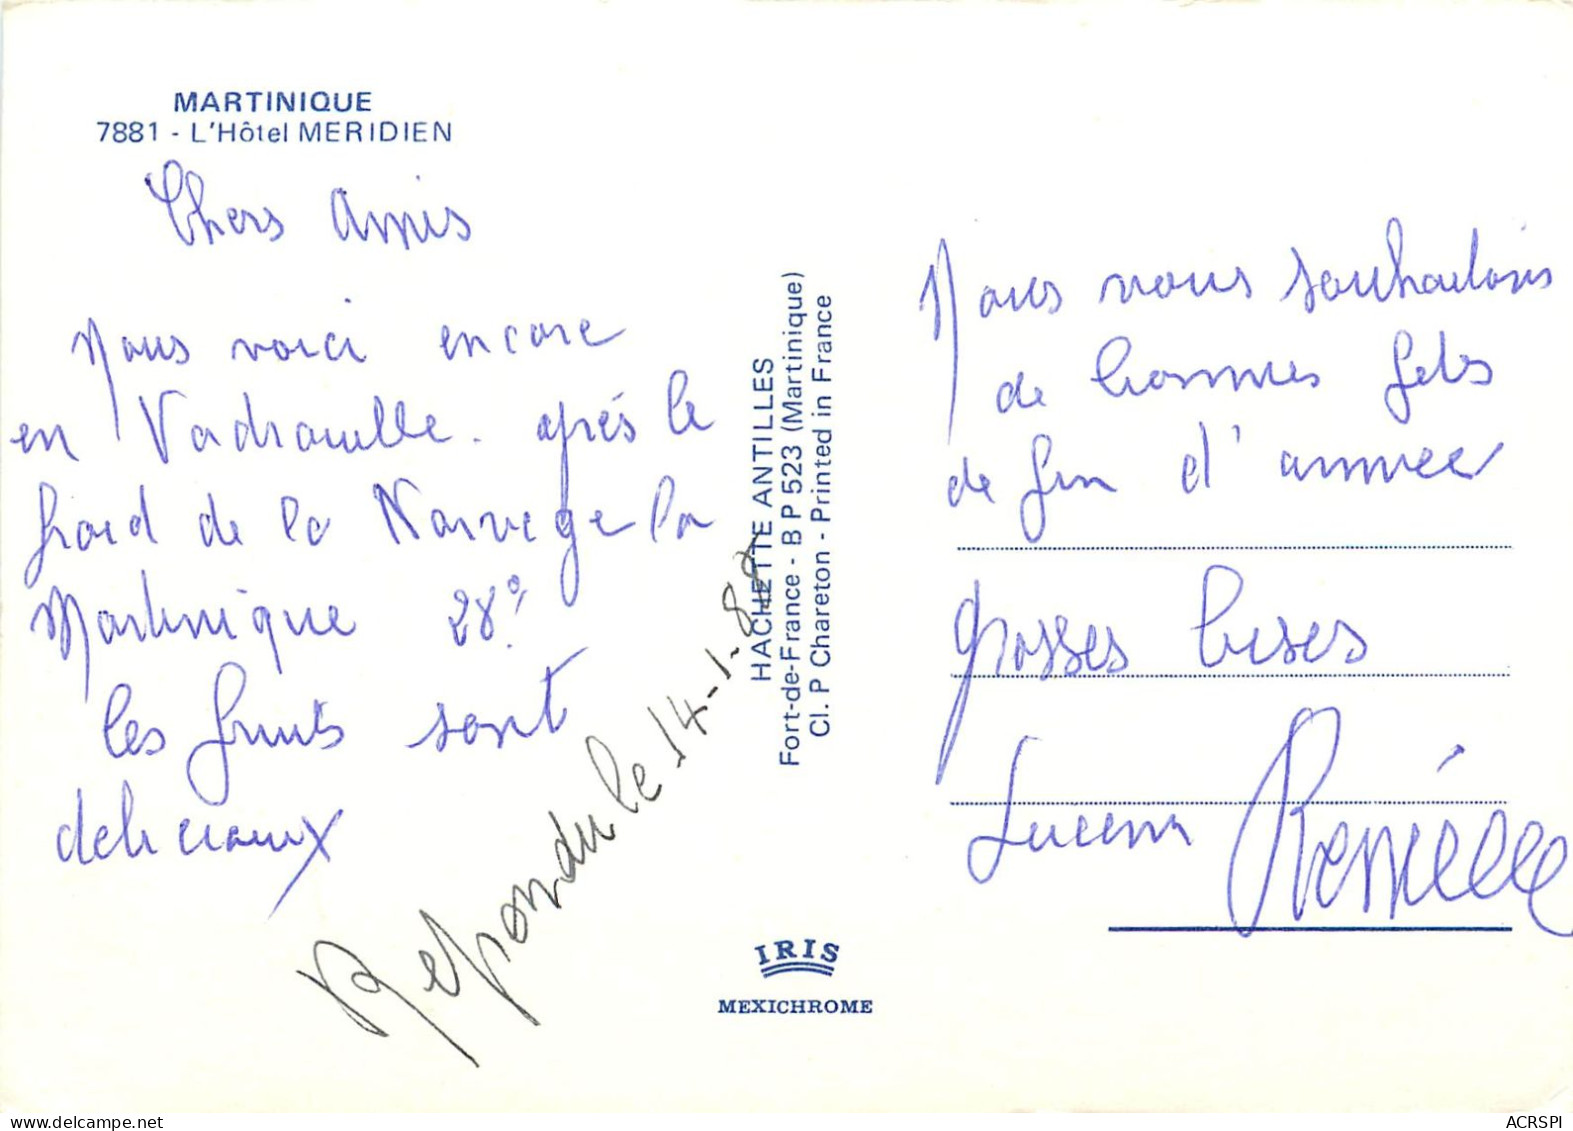 MARTINIQUE
7881 - L'Hôtel MERIDIEN
Chers Amis
Nous voici encore
en Vadrouille. après le
froid de la Norvege la
Martinique 28°.
les fruits sont
delicieux
Repondu le 14-1-87
HACHETTE ANTILLES
Fort-de-France - B P 523 (Martinique)
Cl. P Chareton - Printed in France
IRIS
MEXICHROME
Nous vous souhaitons
de bonnes fetes
de fin d'annee
grosses bises
Lucienn
www.delcampe.net
ACRSPI